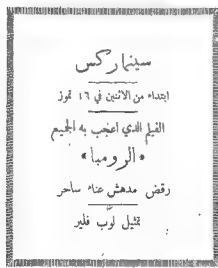 سينما ركس
ابتداء من الاثنين في ١٦ تموز
الفيلم الذي اعجب به الجميع
«الرومبا»
رقص مدهش غناء ساحر
تمثيل لوب فلير